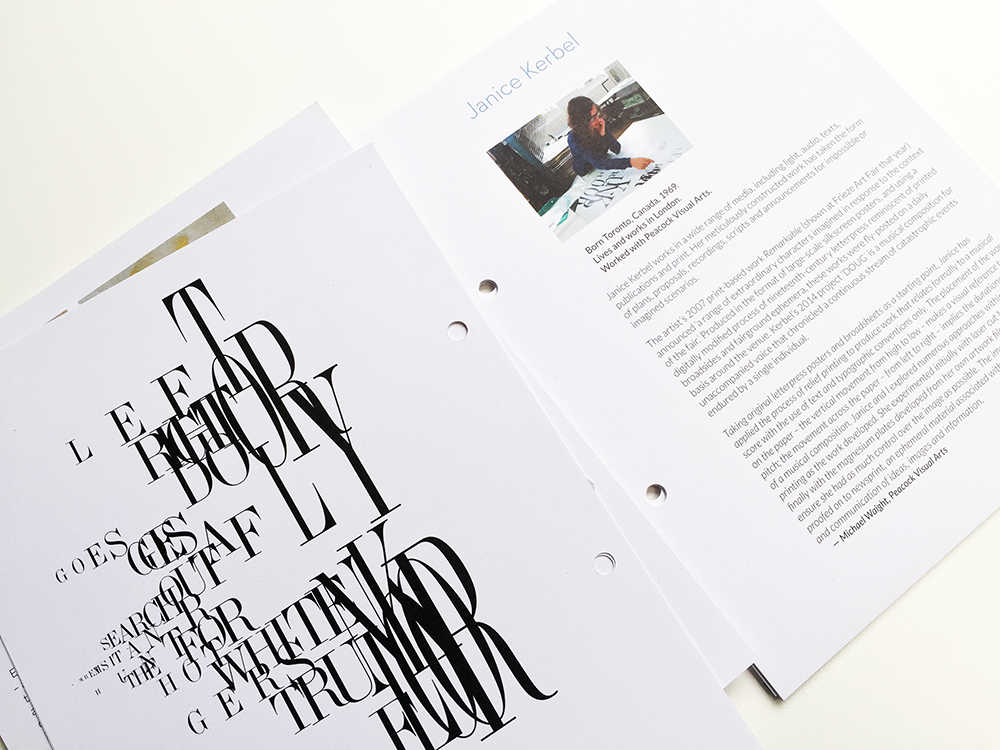 Janice Kerbel
Born Toronto, Canada, 1969.
Lives and works in London.
Worked with Peacock Visual Arts.
Janice Kerbel works in a wide range of media, including light, audio, texts,
publications and print. Her meticulously constructed work has taken the form
of plans, proposals, recordings, scripts and announcements for impossible or
imagined scenarios.
The artist's 2007 print-based work, Remarkable (shown at Frieze Art Fair that year)
announced a range of extraordinary characters imagined in response to the context
of the fair. Produced in the format of large-scale silkscreen posters, and using a
digitally modified process of nineteenth-century letterpress reminiscent of printed
broadsides and fairground ephemera, these works were fly-posted on a daily
basis around the venue. Kerbel's 2014 project 'DOUG' is a musical composition for
unaccompanied voice that chronicled a continuous stream of catastrophic events
endured by a single individual.
Taking original letterpress posters and broadsheets as a starting point, Janice has
applied the process of relief printing to produce work that relates formally to a musical
score with the use of text and typographic conventions only. The placement of the
on the paper – the vertical movement from high to low – makes a visual reference
pitch; the movement across the paper – from left to right – implies the duration
of a musical composition. Janice and I explored numerous approaches
printing as the work developed. She experimented initially with laser
finally with the magnesium plates developed from her own artwork
ensure she had as much control over the image as possible. The
proofed on to newsprint, an ephemeral material associated
and communication of ideas, images and information.
– Michael Waight, Peacock Visual Arts
LEFT
RIGHT OR
DOWN
LY
GOES
GOES
SAF
OUT
SEARCH
FOR
THE
WHETHER
GERS
TRUN